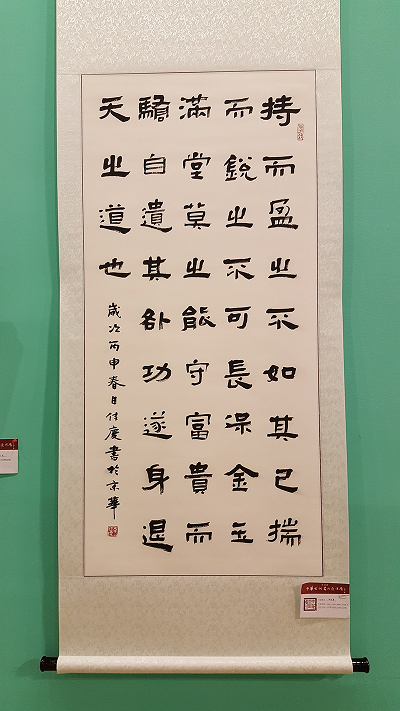 持而盈之不如其已揣
而銳之不可長保金玉
滿堂莫之能守富貴而
驕自遺其咎功遂身退
天之道也
歲次丙申春日佳慶書於京華